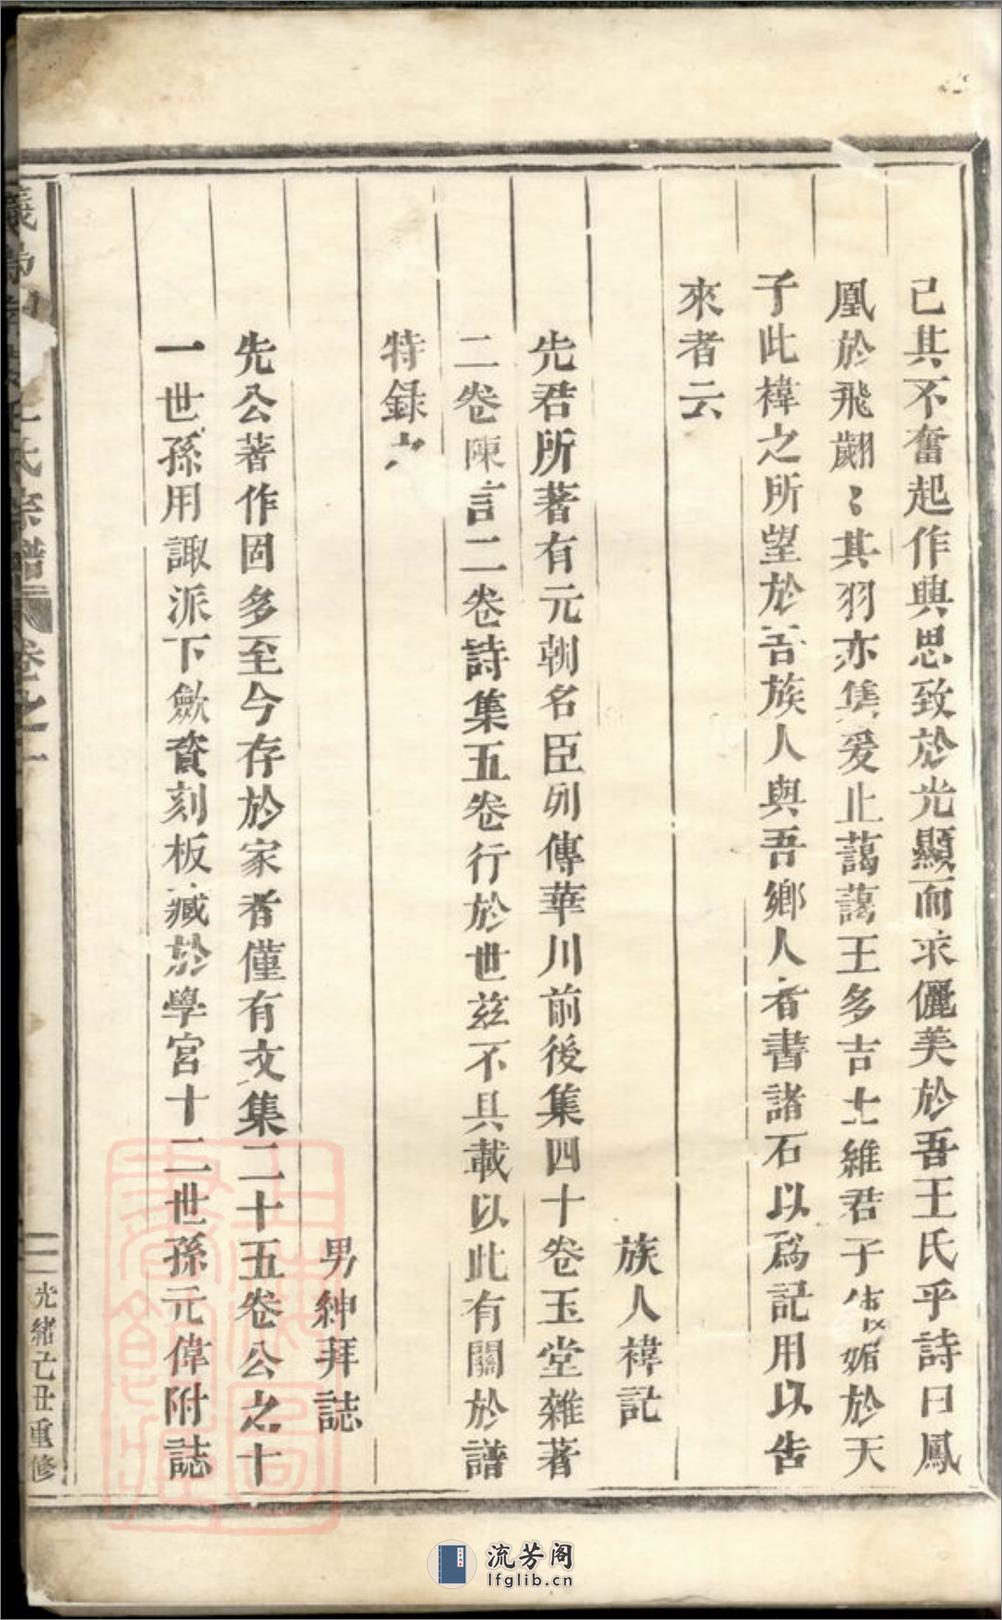 己其不奮起作興思致於光顯而求儷美於吾王氏乎詩曰鳳
凰於飛翽〻其羽亦集爰止藹藹王多吉士維君子使媚於天
子此褘之所望於吾族人與吾鄉人者書諸石以爲記用以告
來者云
族人褘記
先君所著有元朝名臣列傳華川前後集四十卷玉堂雜著
二卷陳言二卷詩集五卷行於世茲不具載以此有關於譜
特錄之
男紳拜誌
先公著作固多至今存於家者僅有文集二十五卷公之十
一世孫用諏派下歛資刻板藏於學宮十二世孫元偉附誌
王氏宗譜 卷之一
二 光緒己丑重修
上海圖書館藏
流芳阁
lfglib.cn